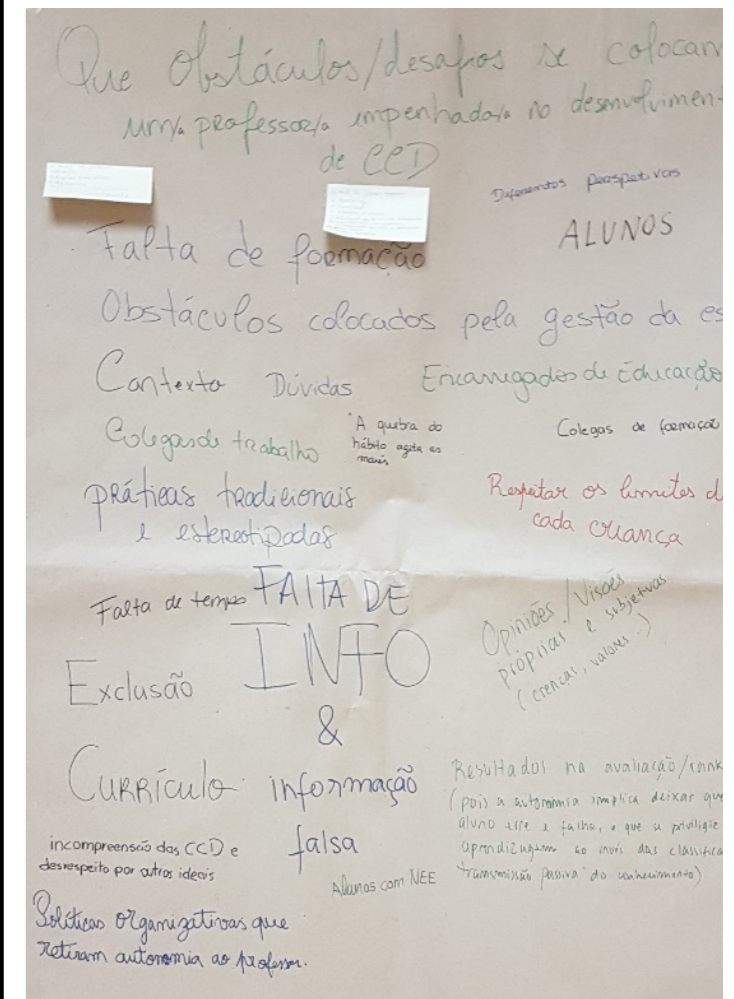 Que Obstáculos/desafios se colocam
um/a professor/a empenhado/a no desenvolvimen
de CCD
Diferentes perspetivas
ALUNOS
Falta de formação
Obstáculos colocados pela gestão da es
Contexto Dúvidas Encarregados de Educação
Colegas de trabalho
"A quebra do
hábito agita as
marés
Colegas de formação
práticas tradicionais
e estereotipadas
Respeitar os limites d
cada criança
Falta de tempo FALTA DE
INFO
&
informação
falsa
Opiniões/Visões
próprias e subjetivas
(crenças, valores..)
Exclusão
Currículo
Resultados na avaliação/rank
(pois a autonomia implica deixar que
aluno erre e falhe, e que se privilegie
aprendizagem ao invés das classifica
transmissão passiva do conhecimento)
incompreensão das CCD e
desrespeito por outros ideais
Alunos com NEE
Políticas organizativas que
retiram autonomia ao professor.